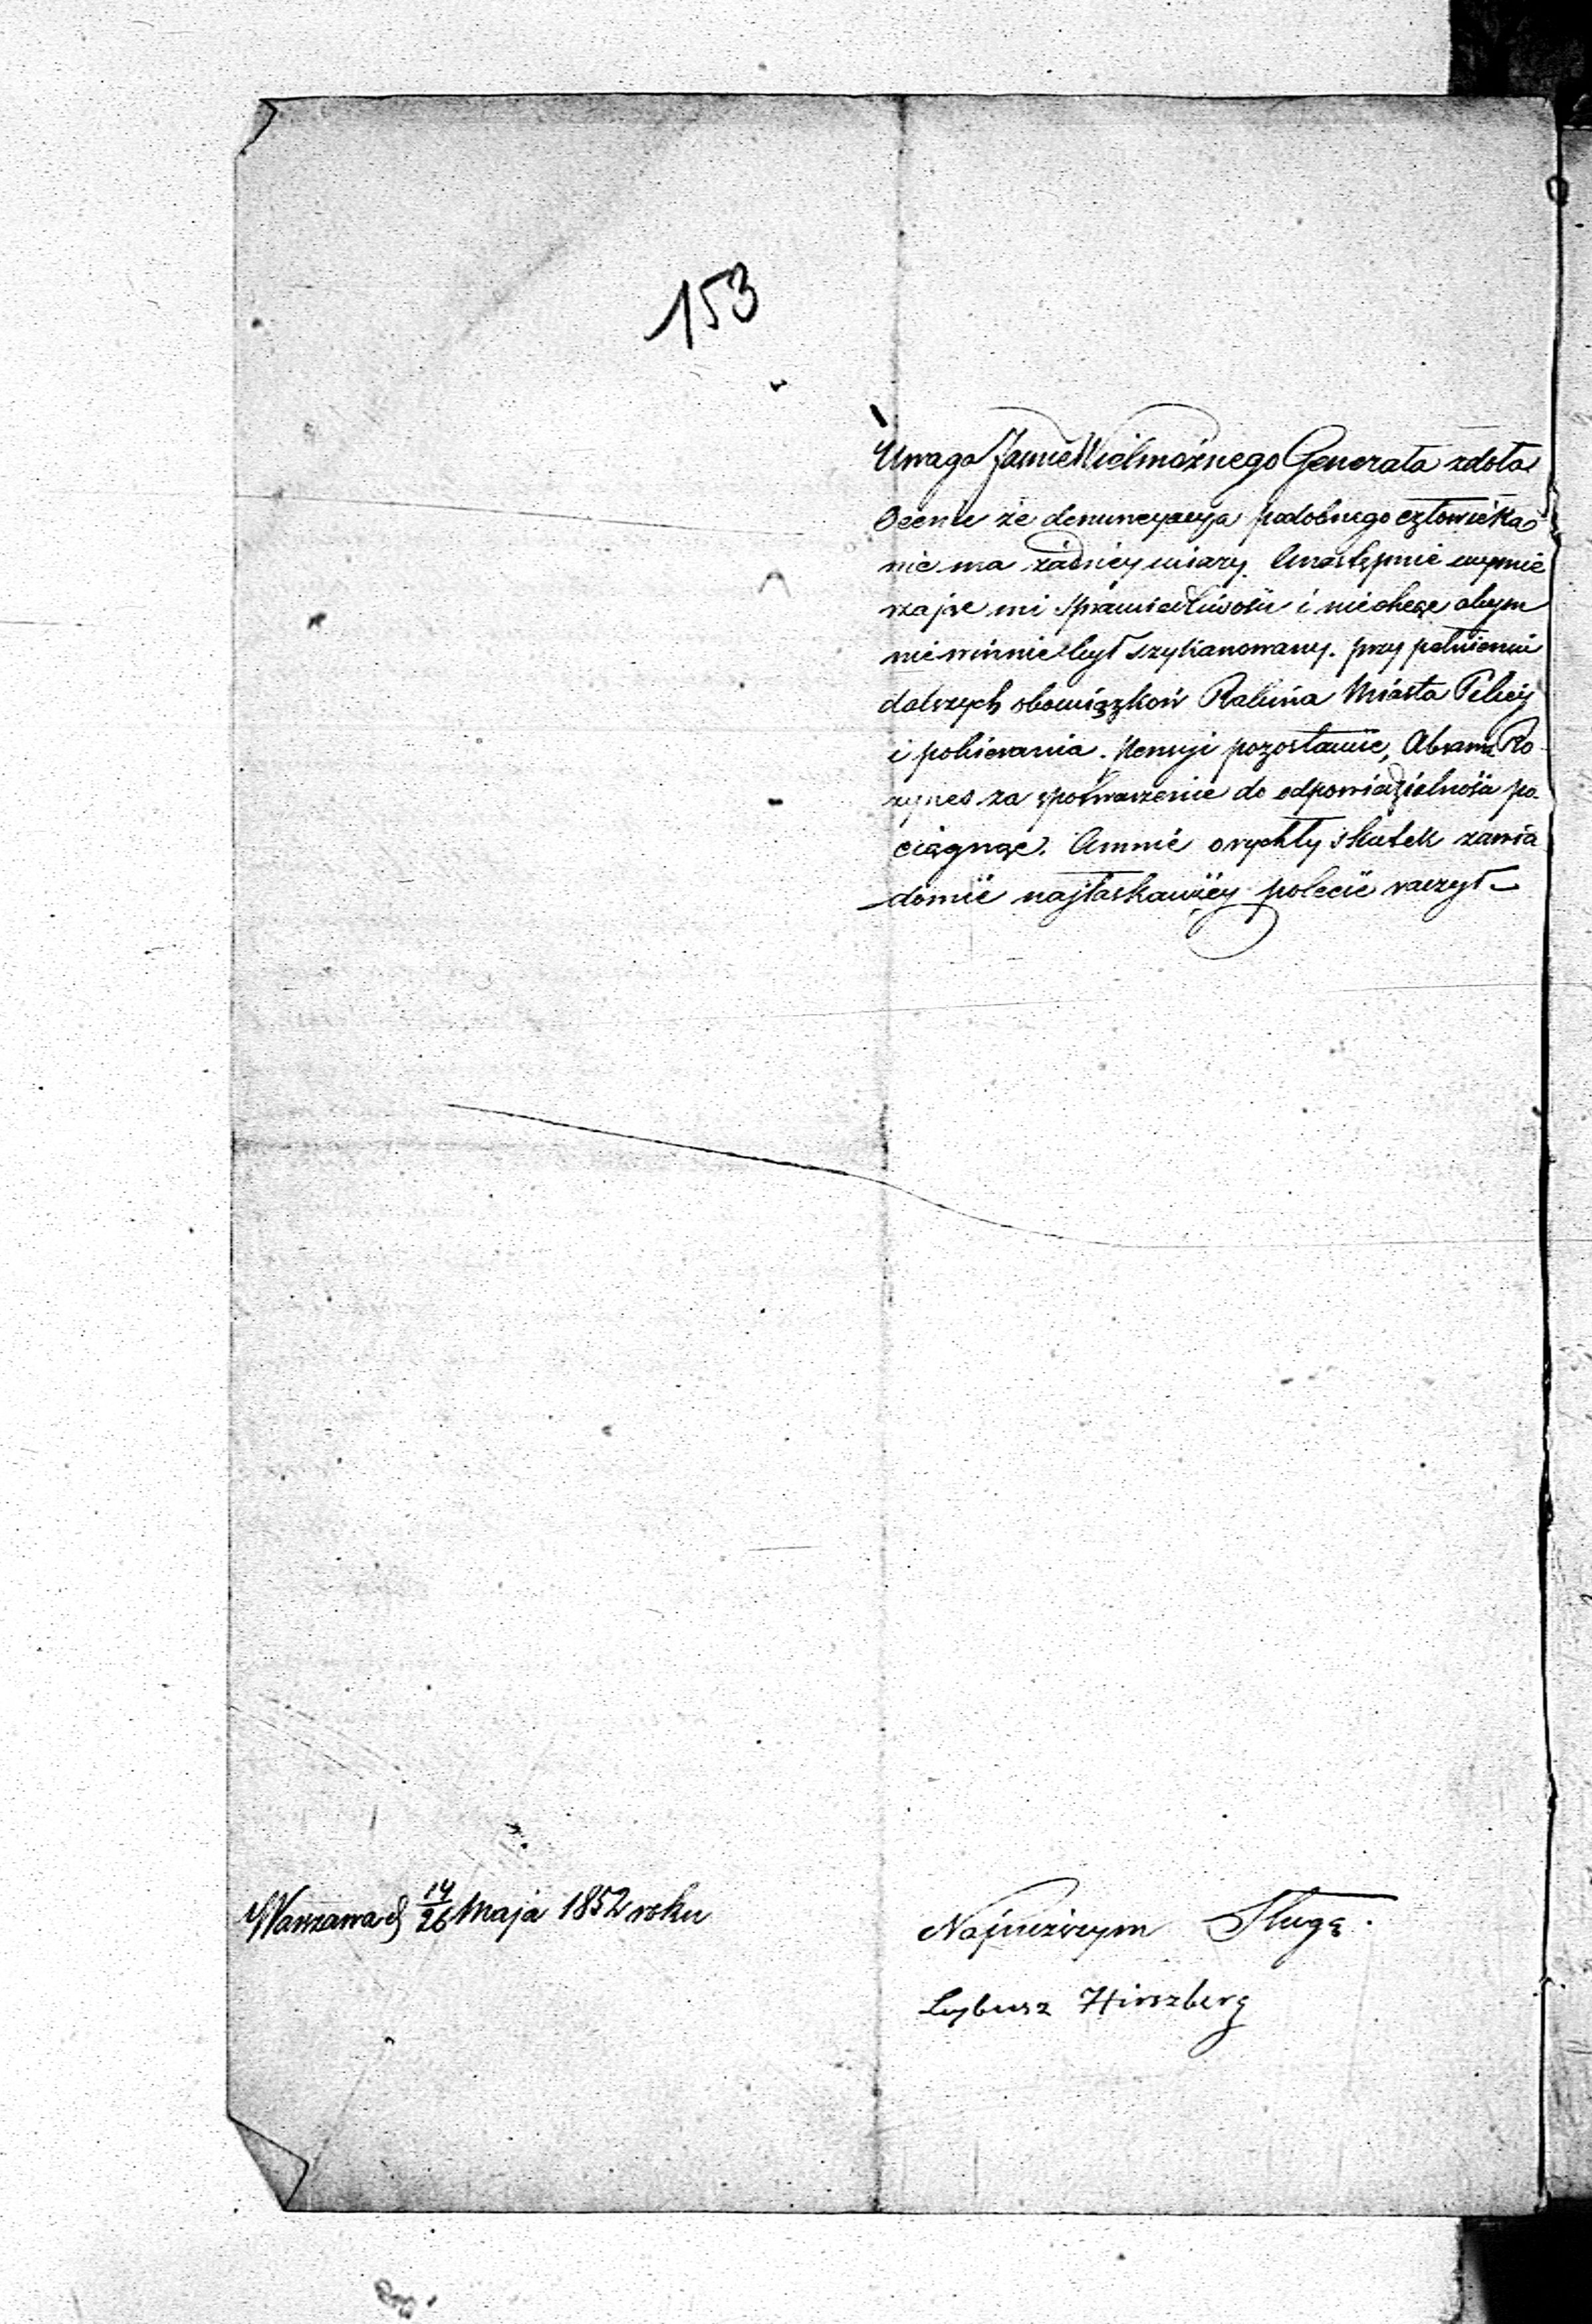 153
Uwaga JaśnieWielmożnego Generała zdoła
Ocenić że denuncyacyja podobnego człowieka
nie ma żadnéy wiary. Anastępnie wymie
rzając mi sprawiedliwość i niechcąc abym
niewinnie był szykanowany. przy pełnieniu
dalszych obowiązków Rabina Miasta Pilicy
i pobierania. Pensyi pozostawić, Abrama Ro
zynes za spotwarzenie do odpowiedzielności po-
ciągnąć. Amnie orychły skutek zawia
domić najłaskawiéy polecić raczył –
Warszawa d 14/26 Maja 1852 roku
Najniższym Sługą.
Leybusz Hirszberg